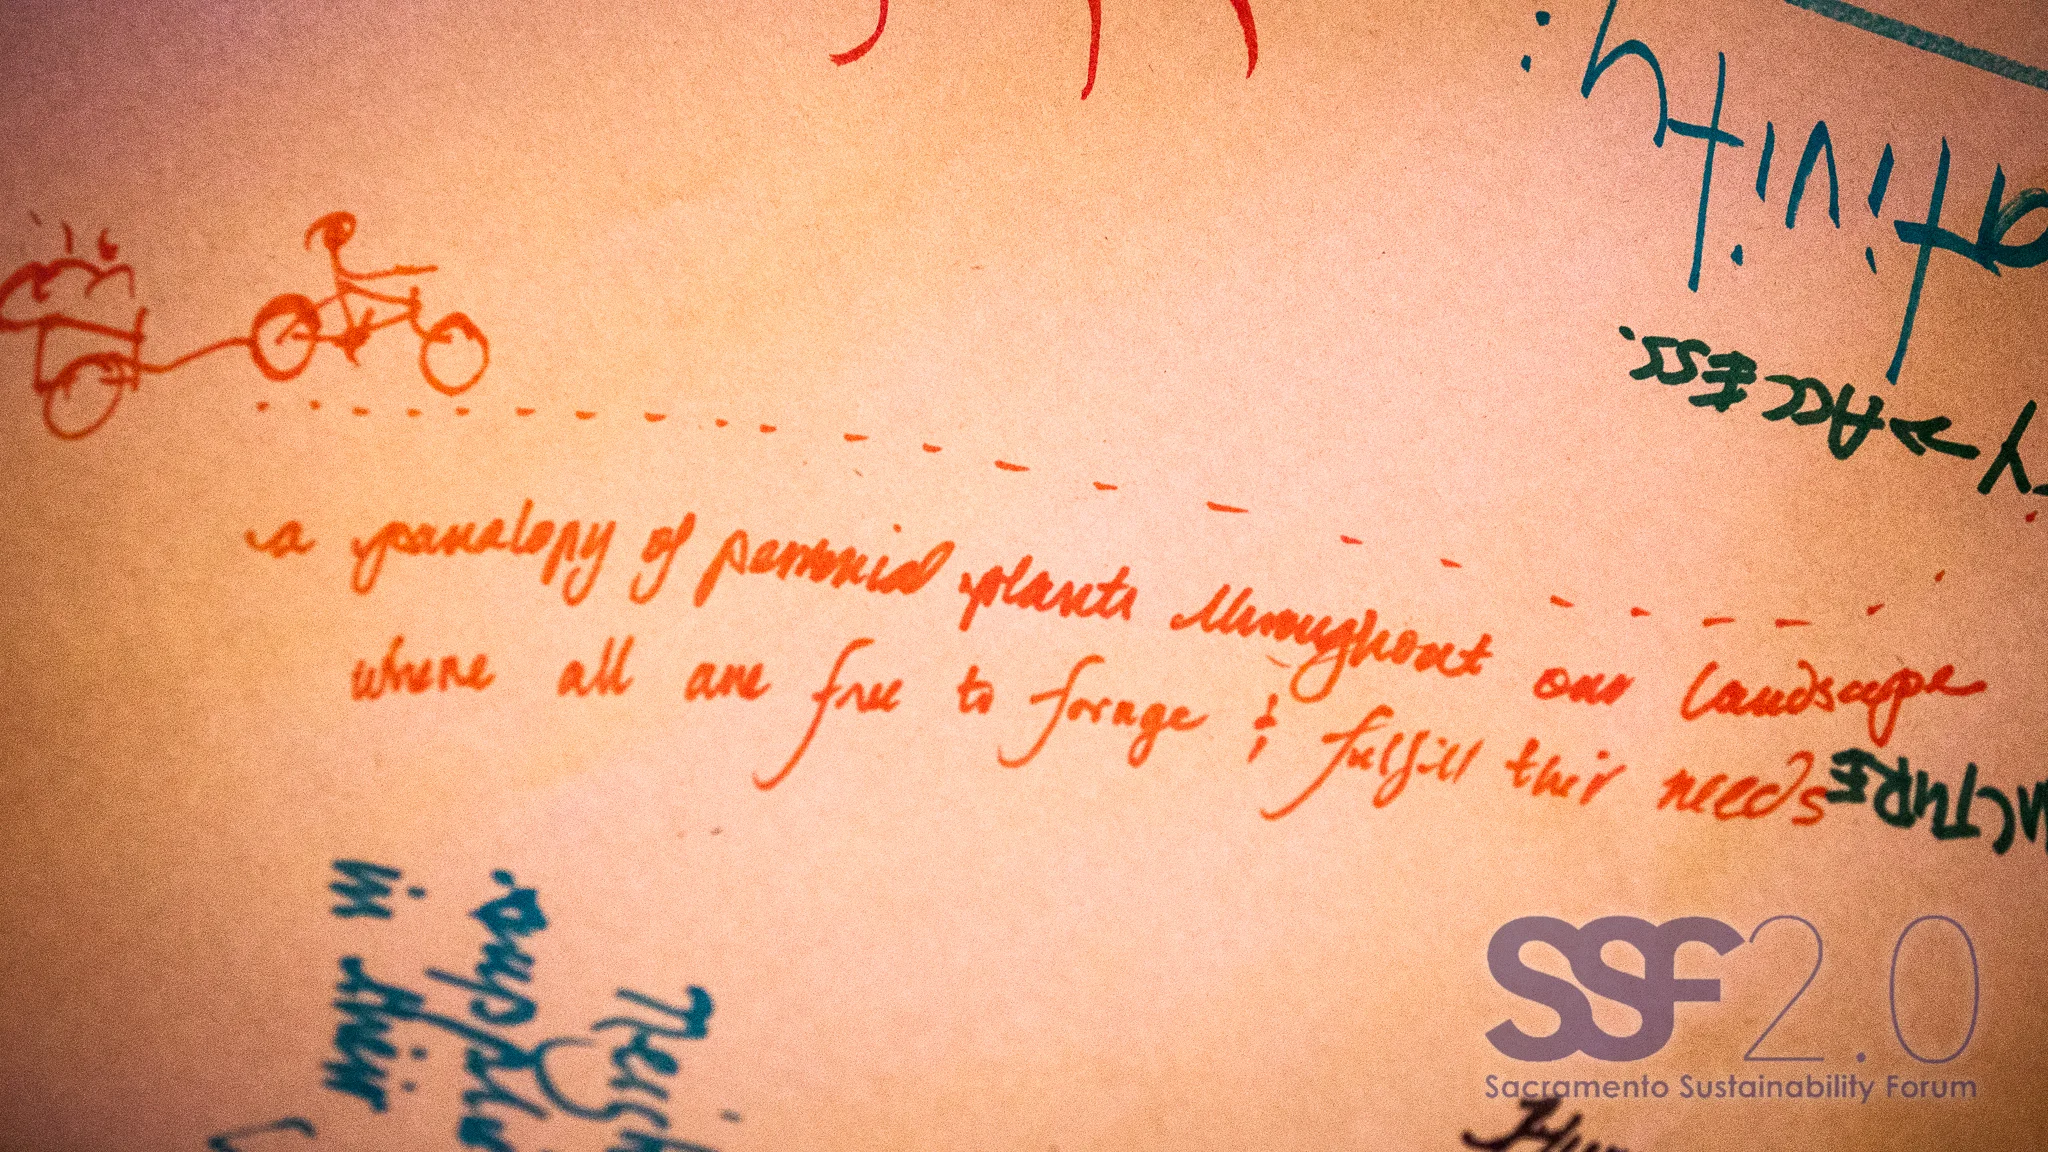 a panalopy of perennial plants throughout our landscape
where all are free to forage & fulfill their needs
ativity:
→ ACCESS.
in their
SSF2.0
Sacramento Sustainability Forum